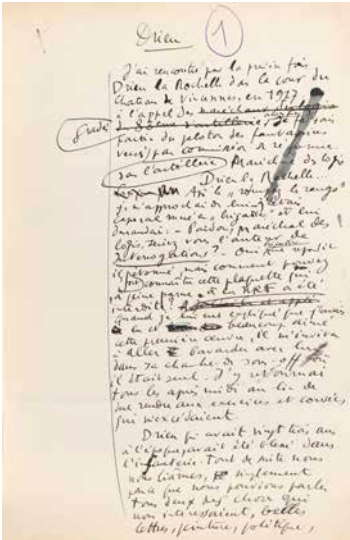 Drien
1
J'ai rencontré pour la première fois
Drieu la Rochelle dans la cour du
Chateau de Vincennes, en 1917
à l'appel des
gradés
faisais
partie du peloton des fantassins
versés par commission de réforme
dans l'artillerie Maréchal des logis
Drieu la Rochelle...
Après le "rompez les rangs"
je m'approchai de lui j'étais
caporal nommé "brigadier" et lui
demandai: - Pardon, maréchal des
logis, seriez vous l'auteur de
Interrogations? - Oui me répondit
il étonné, mais comment pouvez
vous connaître cette plaquette qui
à peine parue à la NRF a été
interdite?
Quand je lui eus expliqué que j'avais
lu et beaucoup aimé
cette première œuvre, il m'invita
à aller bavarder avec lui
dans sa chambre de sous-off où
il était seul. J'y retournai
tous les après midi au lieu de
me rendre aux exercices et corvées
qui m'excédaient.
Drieu qui avait vingt trois ans
à l'époque avait été blessé dans
l'infanterie. Tout de suite nous
nous liâmes, simplement
parce que nous pouvions parler
tous deux des choses qui
nous intéressaient, belles
lettres, peinture, politique,